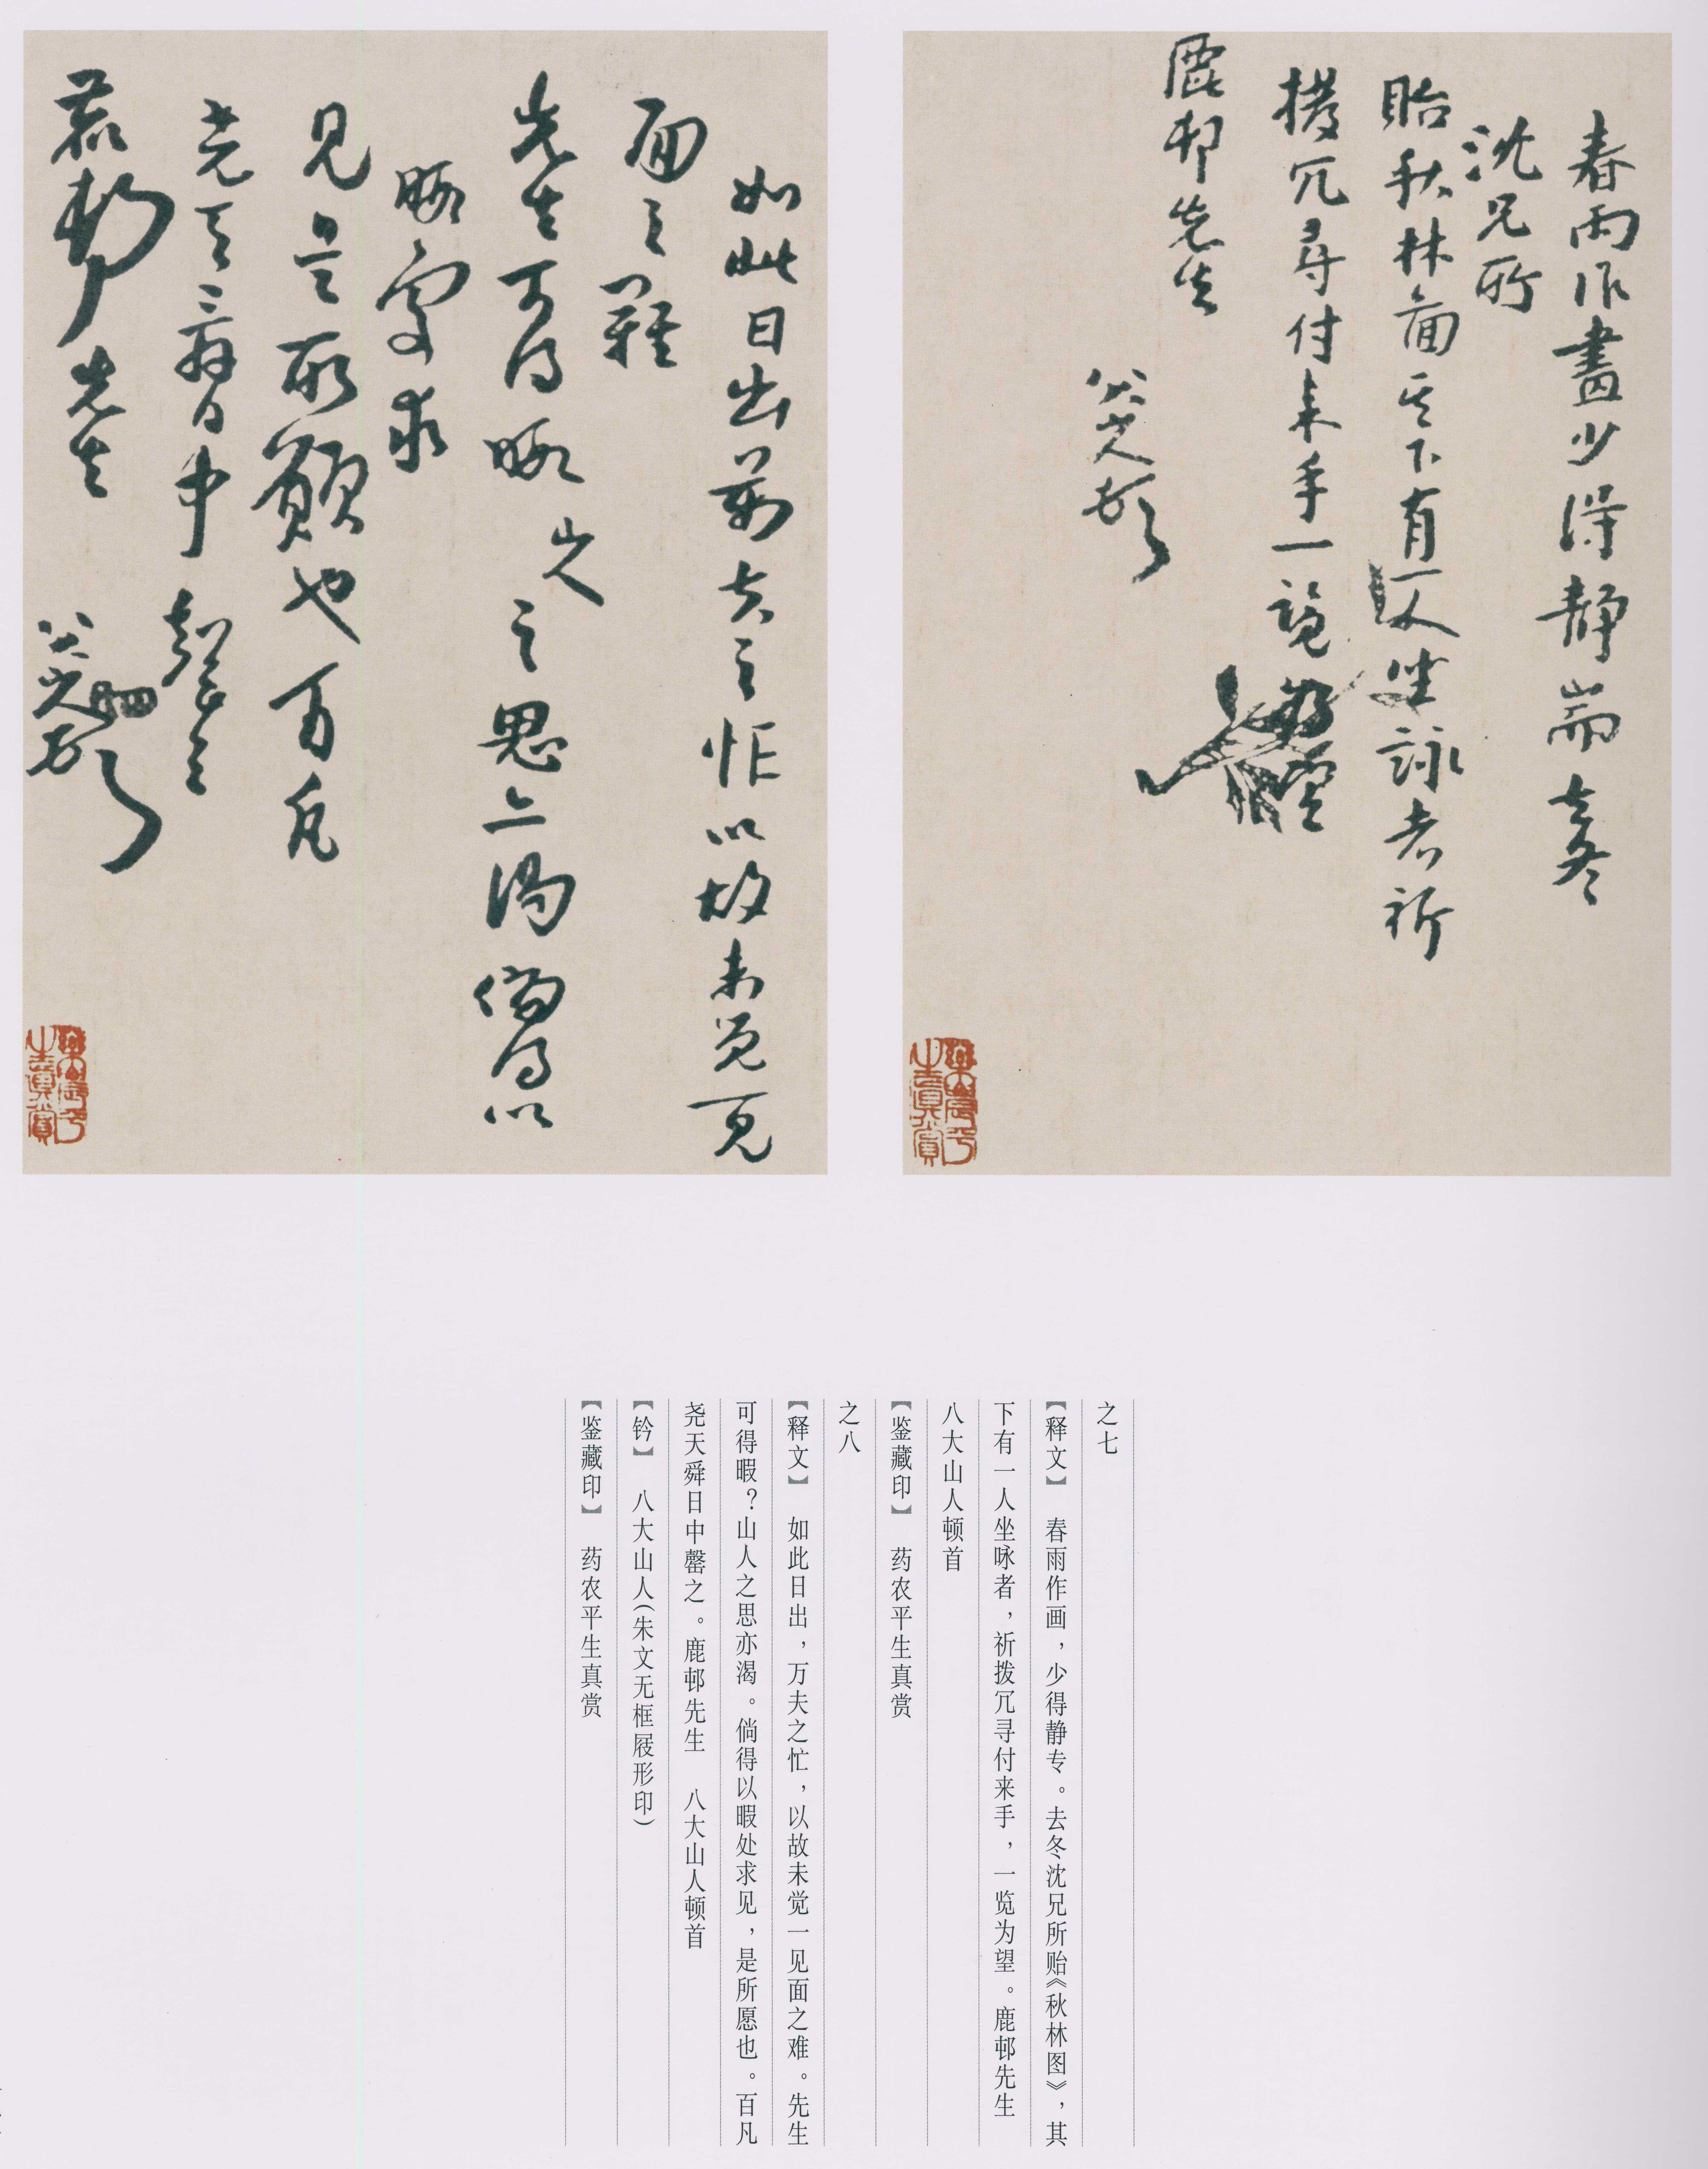 春雨作畫少得静耑去冬
沈兄所
貽秋林圖其下有一人坐詠者祈
撥冗尋付来手一覽為望
鹿邨先生
八大山人頓首
如此日出萬夫之忙以故未覺一見
面之難
先生可得暇山人之思亦渴倘得以
暇處求
見是所願也百凡
尧天舜日中罄之
鹿邨先生
八大山人頓首
之七
【释文】 春雨作画，少得静专。去冬沈兄所贻《秋林图》，其
下有一人坐咏者，祈拨冗寻付来手，一览为望。鹿邨先生
八大山人顿首
【鉴藏印】 药农平生真赏
之八
【释文】 如此日出，万夫之忙，以故未觉一见面之难。先生
可得暇？山人之思亦渴。倘得以暇处求见，是所愿也。百凡
尧天舜日中罄之。鹿邨先生 八大山人顿首
【钤】 八大山人(朱文无框屐形印)
【鉴藏印】 药农平生真赏